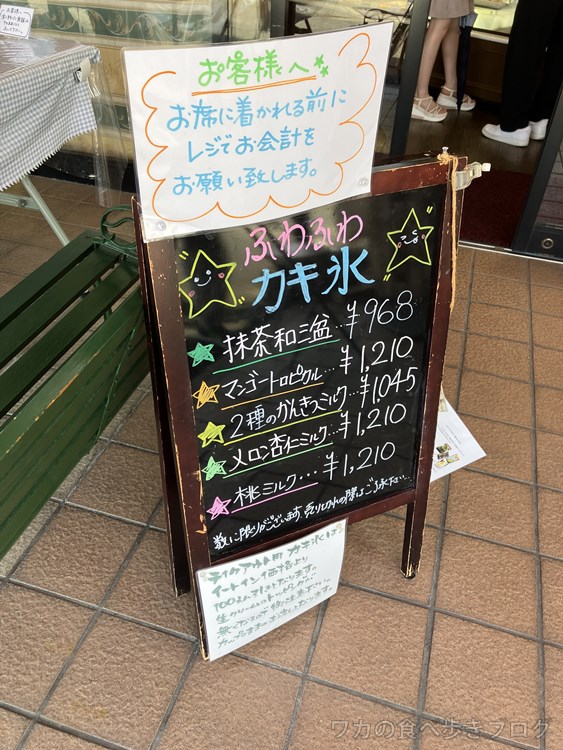 お客様へ
お席に着かれる前に
レジでお会計を
お願い致します。
ふわふわ
カキ氷
抹茶和三盆…¥968
マンゴートロピクル…¥1,210
2種のかんきつミルク…¥1,045
メロン杏仁ミルク…¥1,210
桃ミルク…¥1,210
数に限りがございます。売り切れの際はご了承ださい
テイクアウト用 カキ氷は
イートイン価格より
生クリーム
ワカの食べ歩きブログ